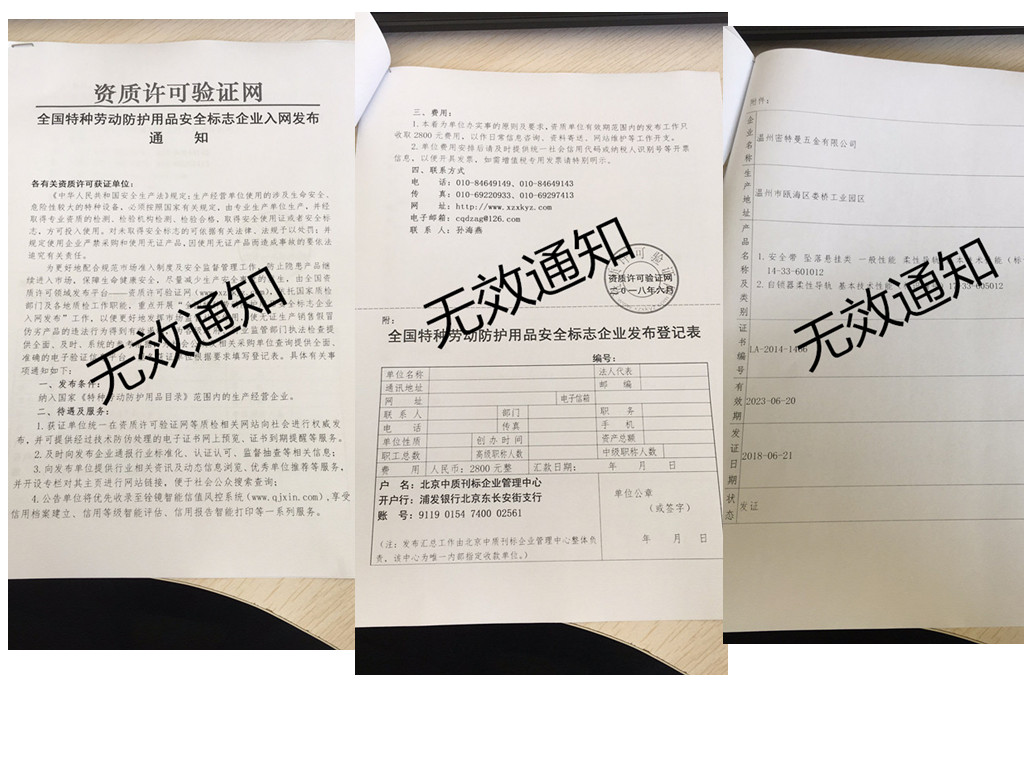 资质许可验证网
全国特种劳动防护用品安全标志企业入网发布
通 知
各有关资质许可获证单位：
《中华人民共和国安全生产法》规定：生产经营单位使用的涉及生命安全、
危险性较大的特种设备，必须按照国家有关规定，由专业生产单位生产，并经
取得专业资质的检测、检验机构检测、检验合格，取得安全使用证或者安全标
志，方可投入使用。对未取得安全标志的可依据有关法律、法规予以处罚；并
规定使用企业严禁采购和使用无证产品，因使用无证产品而造成事故的要依法
追究有关责任。
为更好地配合规范市场准入制度及安全监督管理工作，防止隐患产品继
续进入市场，保障生命健康安全，尽量减少生产安全事故的发生，由全国资
质许可领域发布平台——资质许可验证网（www.xzxkyz.com），依托国家质检
部门及各地质检工作职能，重点开展“全国特种劳动防护用品安全标志企业
入网发布”工作，以便更好地发挥市场监
使无证生产销售假冒
伪劣产品的违法行为得到有
业监管部门执法检查提
供全面、及时、系统的参考
会公众及相关采购单位查询提供全面、
准确的电子验证信息平台。
获证单位根据要求填写登记表。具体有关事
项通知如下：
一、发布条件：
纳入国家《特种劳动防护用品目录》范围内的生产经营企业。
二、待遇及服务：
1.获证单位统一在资质许可验证网等质检相关网站向社会进行权威发
布，并可提供经过技术防伪处理的电子证书网上预览、证书到期提醒等服务。
2.及时向发布企业通报行业标准化、认证认可、监督抽查等相关信息；
3.向发布单位提供行业相关资讯及动态信息浏览、优秀单位推荐等服务，
并开设专栏对其主页进行网站链接，便于社会公众搜索查询；
4.公告单位将优先收录至铨镜智能信值风控系统（www.qjxin.com），享受
信用档案建立、信用等级智能评估、信用报告智能打印等一系列服务。
无效通知
三、费用：
1.本着为单位办实事的原则及要求，资质单位有效期范围内的发布工作只
收取2800元费用，以作日常信息咨询、资料寄送、网站维护等工作开支。
2.单位费用安排后请及时提供统一社会信用代码或纳税人识别号等开票
信息，以便开具发票，如需增值税专用发票请特别明示。
四、联系方式
电 话：010-84649149、010-84649143
传 真：010-69220933、010-69297413
网 址：http://www.xzxkyz.com
电子邮箱：cqdzag@126.com
联 系 人：孙海燕
资质许可验证网
二〇一八年六月
无效通知
附：
全国特种劳动防护用品安全标志企业发布登记表
编号：
单位名称 法人代表
通讯地址 邮 编
网 址 电子信箱
联 系 人 部门 职 务
电 话 传真 手 机
单位性质 创办时间 资产总额
职工总数 高级职称人数 中级职称人数
费 用 人民币：2800元整 汇款日期： 年 月 日
户 名：北京中质刊标企业管理中心
开户行：浦发银行北京东长安街支行
账 号：9119 0154 7400 02561
（注：发布汇总工作由北京中质刊标企业管理中心整体负
责，该中心为唯一内部指定收款单位。）
单位公章
（或签字）
年 月 日
附件：
企业名称 温州密特曼五金有限公司
生产地址 温州市瓯海区娄桥工业园区
产品名称及类别 1.安全带 坠落悬挂类 一般性能 柔性导轨 基本技术性能（标
14-33-601012
2.自锁器柔性导轨 基本技术性能
605012
证书编号 LA-2014-1466
有效期 2023-06-20
发证日期 2018-06-21
状态 发证
无效通知